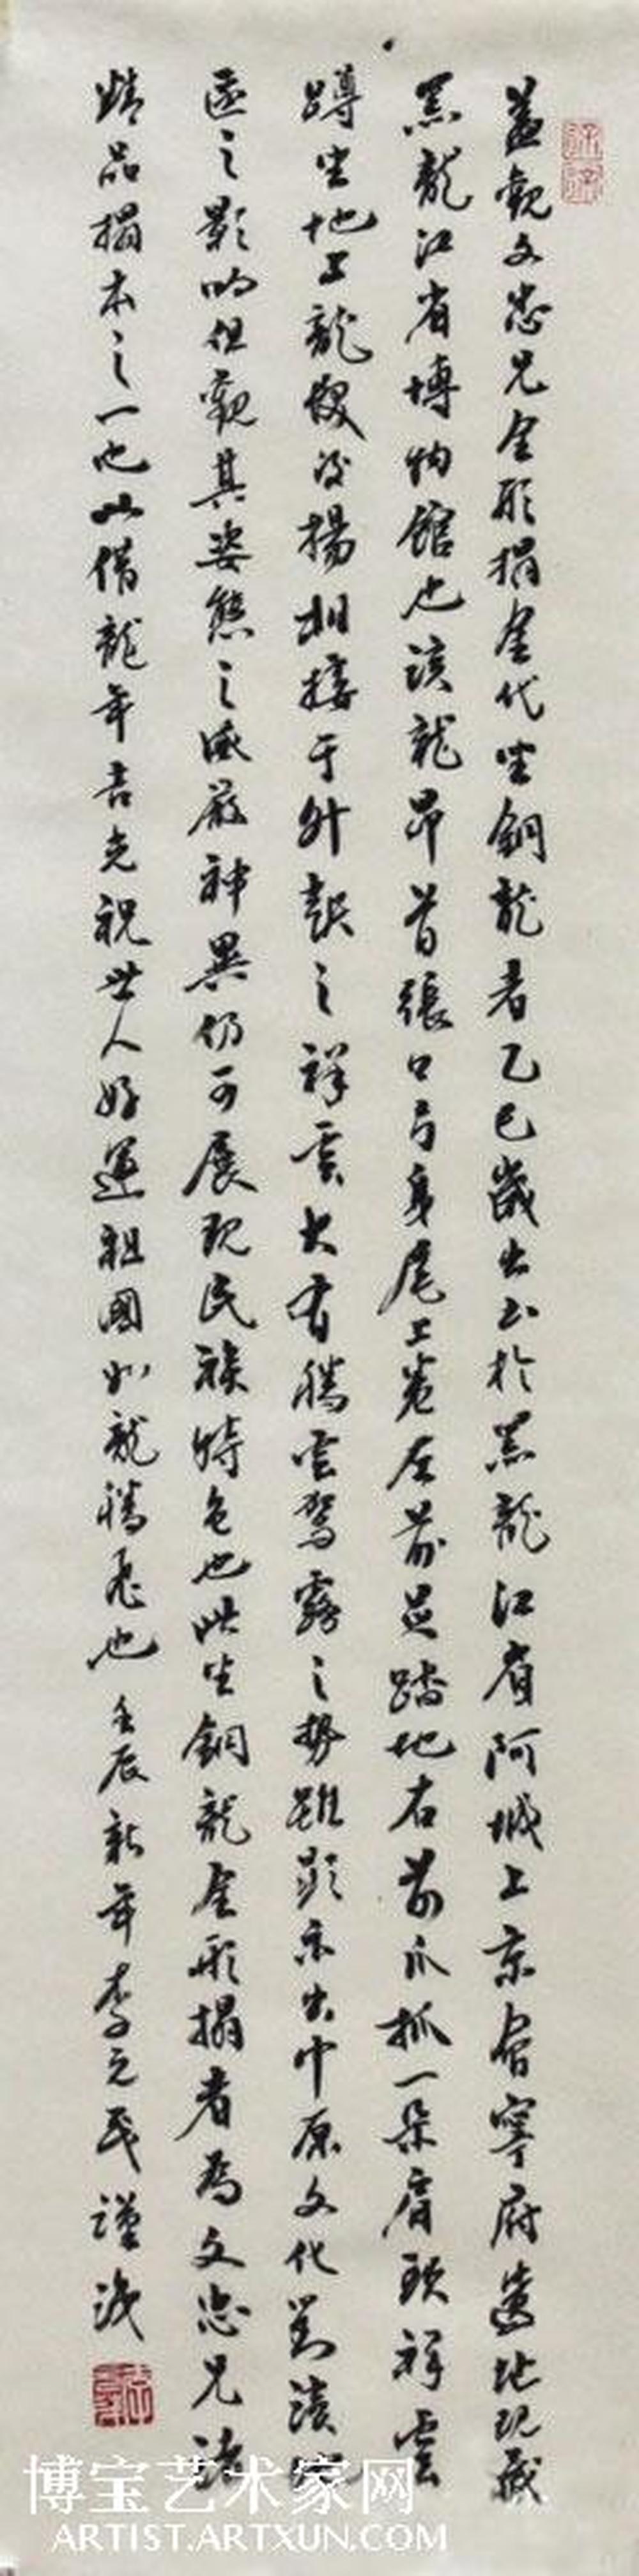 盖觀文忠兄全形搨金代坐銅龍者乙巳歲出土於黑龍江省阿城上京會寧府遺址現藏
黑龍江省博物館也該龍昂首張口弓身尾上卷左前足踏地右前爪抓一朵肩頸祥雲
蹲坐地上龍後揚相接于外起之祥雲大有騰雲駕霧之勢雖顯示出中原文化對
之影响但觀其姿態之威嚴神異仍可展現民族特色也此坐銅龍全形搨者為文忠兄諸
精品搨本之一也以借龍年吉光祝世人好運祖國如龍騰飛也 壬辰新年李元茂謹識
博宝艺术家网
ARTIST.ARTXUN.COM